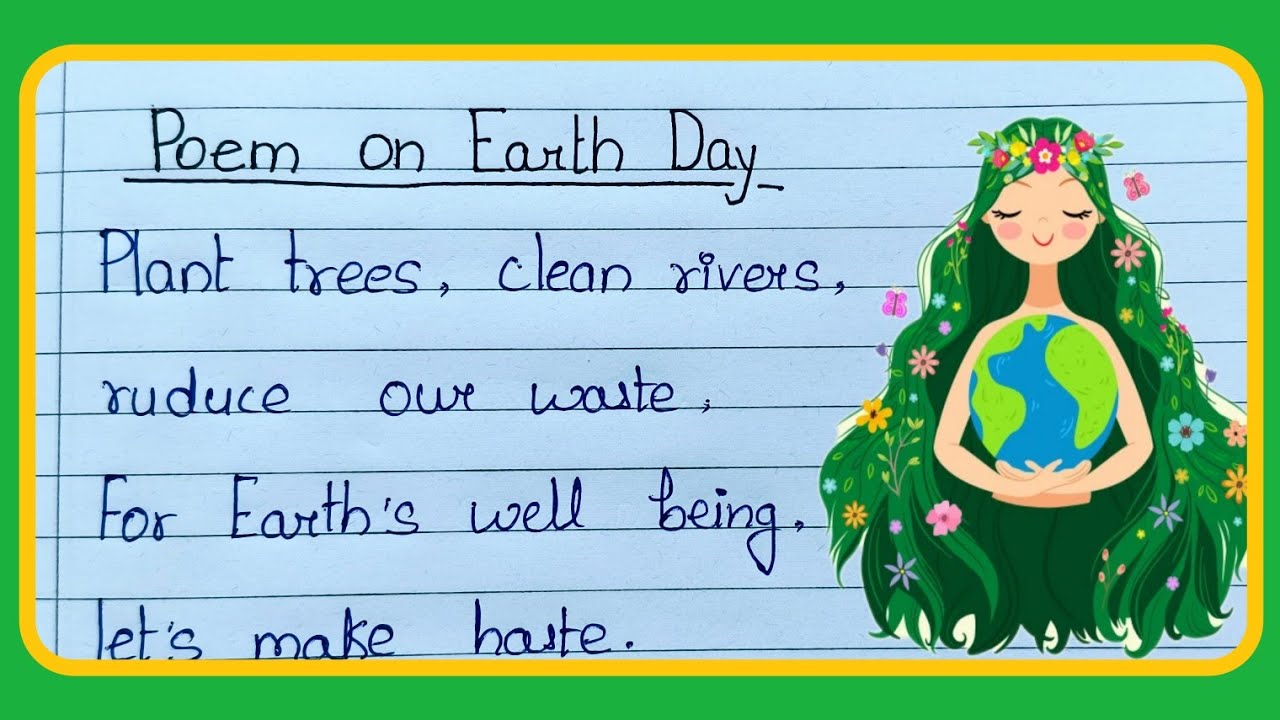 Poem on Earth Day
Plant trees, clean rivers,
ruduce our waste,
For Earth's well being,
let's make haste.